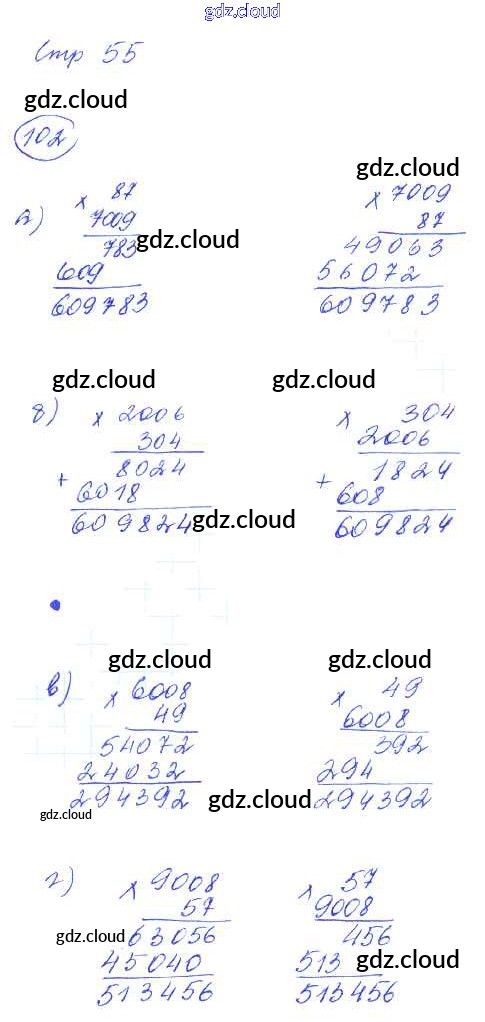 gdz.cloud
Стр 55
gdz.cloud
102
gdz.cloud
а) × 87 × 7009
7009 87
783 gdz.cloud 49063
609 56072
609783 609783
gdz.cloud gdz.cloud
б) × 2006 × 304
304 2006
+ 8024 + 1824
6018 608
609824 gdz.cloud 609824
gdz.cloud gdz.cloud
в) × 6008 × 49
49 6008
54072 392
24032 294
294392 gdz.cloud 294392
gdz.cloud
г) × 9008 × 57
57 9008
gdz.cloud 63056 456
45040 513 gdz.cloud
513456 513456